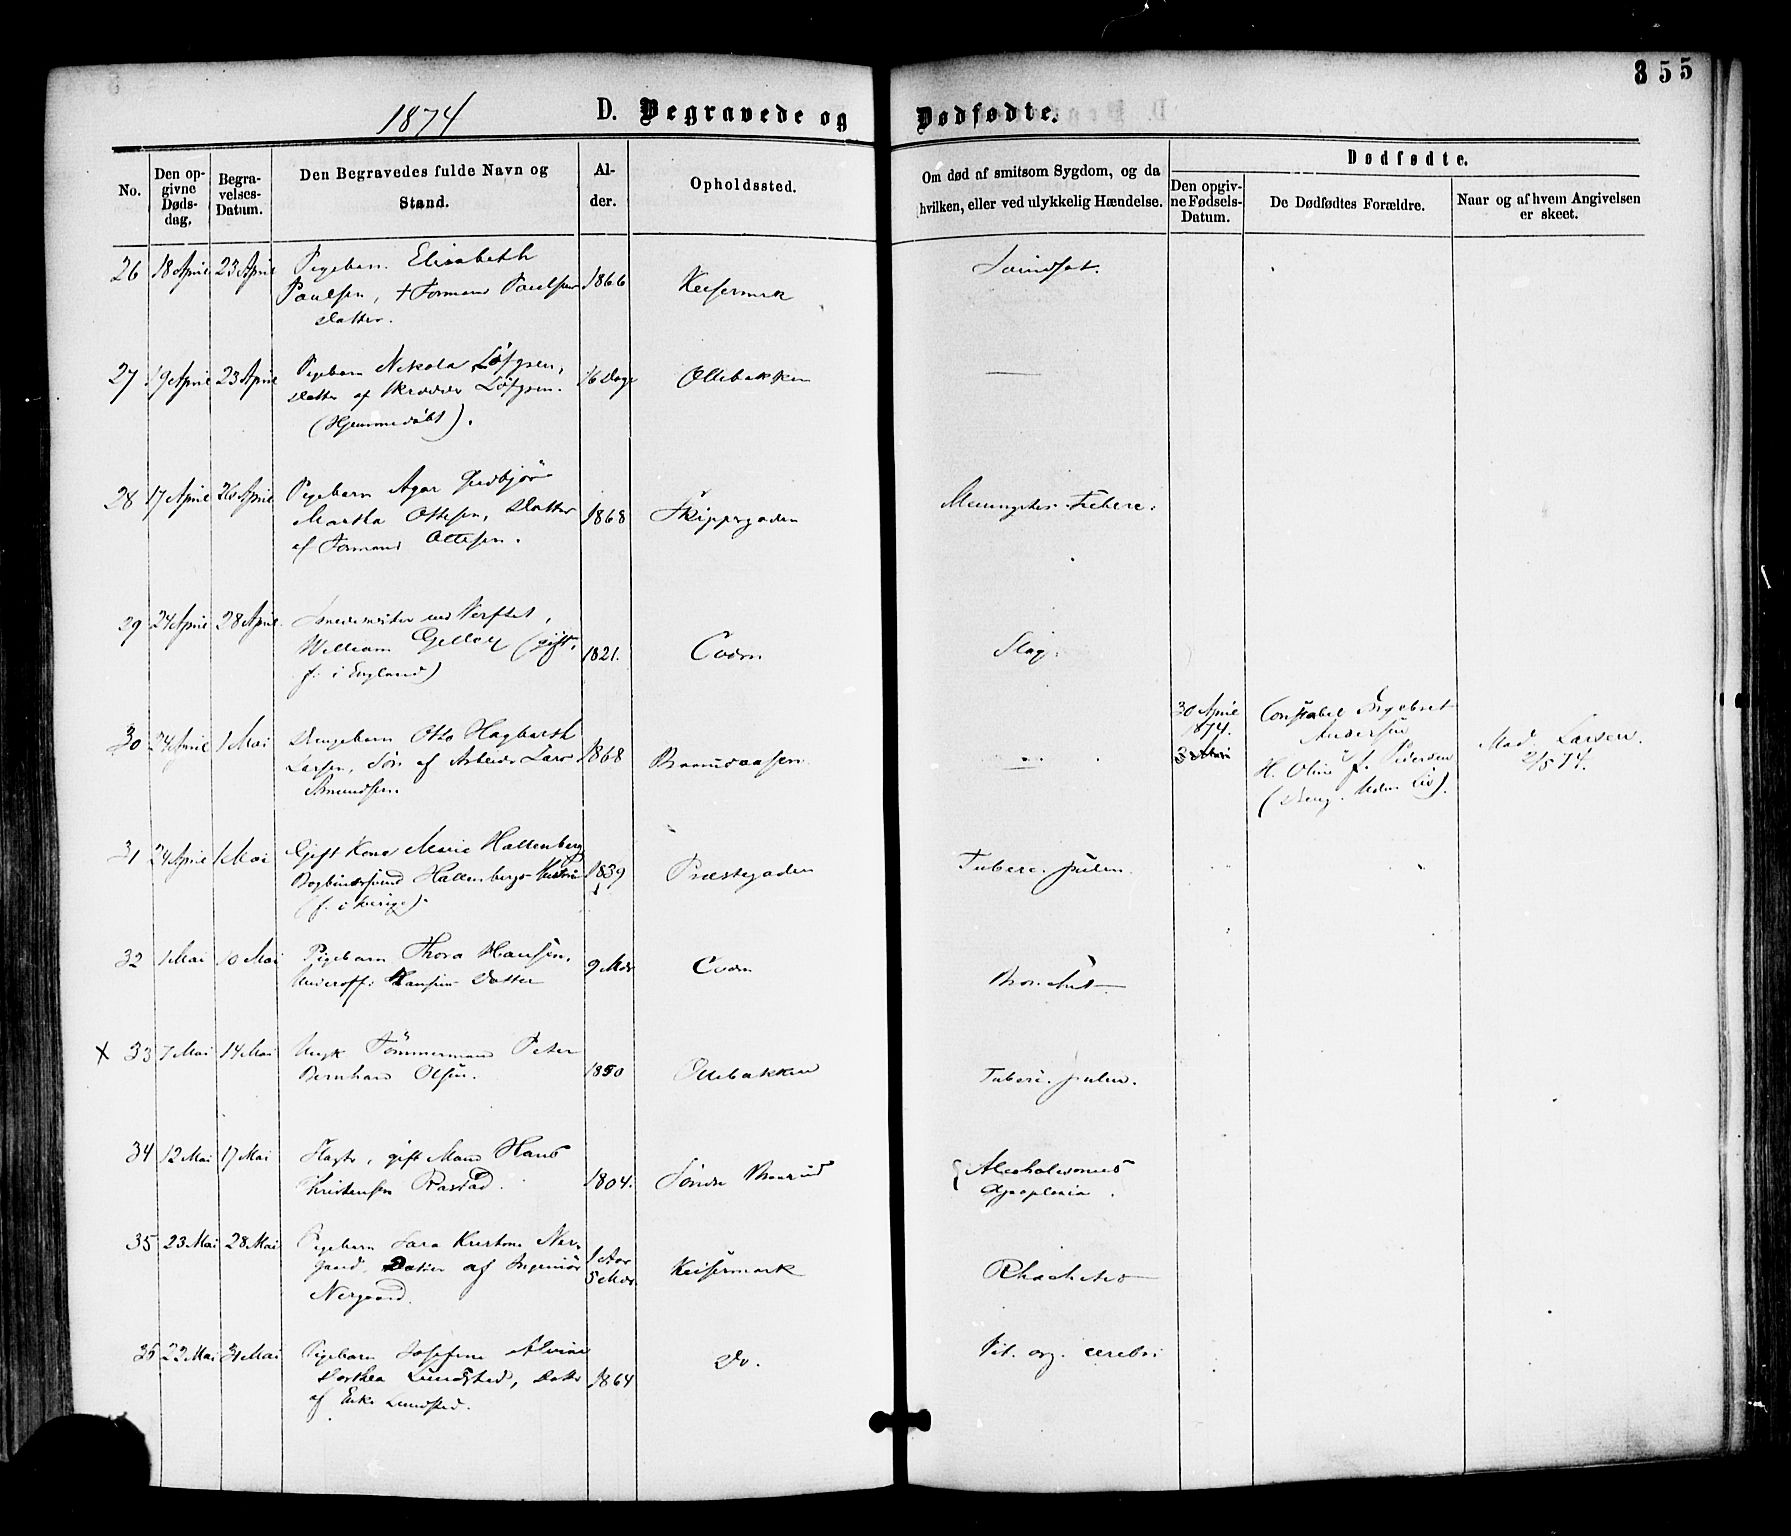 355
1874
D. Begravede og Dødfødte.
No.
Den opgivne Dødsdag.
Begravelses-Datum.
Den Begravedes fulde Navn og Stand.
Alder.
Opholdssted.
Om død af smitsom Sygdom, og da hvilken, eller ved ulykkelig Hændelse.
Dødfødte.
Den opgivne Fødsels-Datum.
De Dødfødtes Forældre.
Naar og af hvem Angivelsen er skeet.
26 18 April 23 April Pigebarn Elisabeth 1866 Keisermrk
Paulsen, + Formand Paulsens
Datter.
27 19 April 23 April Pigebarn Nikola Løfgren, 16 Dage Ollebakken
Datter af Skrædder Løfgren.
(Hjemmedøbt).
28 17 April 26 April Pigebarn Agar 1868 Skippergaden
Martha Ottesen, Datter
af Formand Ottesen.
29 24 April 28 April Smedemester ved Verftet, 1821. Hage Slag.
William (gift,
f. i England)
30 24 April 1 Mai Drengebarn Otto Hagbarth 1868
Larsen, Søn af Arbeider Lars
Amundsen
30 April 1874. Constabel Ingebret Andersen
H. Oline f. Pedersen
Mad. Larsen 2/5 74.
31 24 April 1 Mai Gift Kone Marie Hallenberg 1839 Præstegaden Tuberc. pulm.
Bogbindersvend Hallenbergs Hustru
(f. i Sverige).
32 1 Mai 10 Mai Pigebarn Thora Hansen, 9 Mdr Bronchit
Underoff: Hansens Datter
X 33 7 Mai 14 Mai Ungk Tømmermand Peter 1850 Ollebakken Tuberc. pulm.
Bernhard Olsen.
34 12 Mai 17 Mai Slagter, gift Mand Hans 1804. Søndre Alcoholismus
Kristensen Apoplexia.
35 23 Mai 28 Mai Pigebarn Sara Kristine Ner- 1 Aar 5 Mdr Keisermark Rhachitis
gaard, Datter af Ingeniør
Nergaard.
35 22 Mai 31 Mai Pigebarn Josefine Alvine 1864 Do. Vit. org. cerebri
Dorthea Lundsted, Datter
af Enke Lundsted.